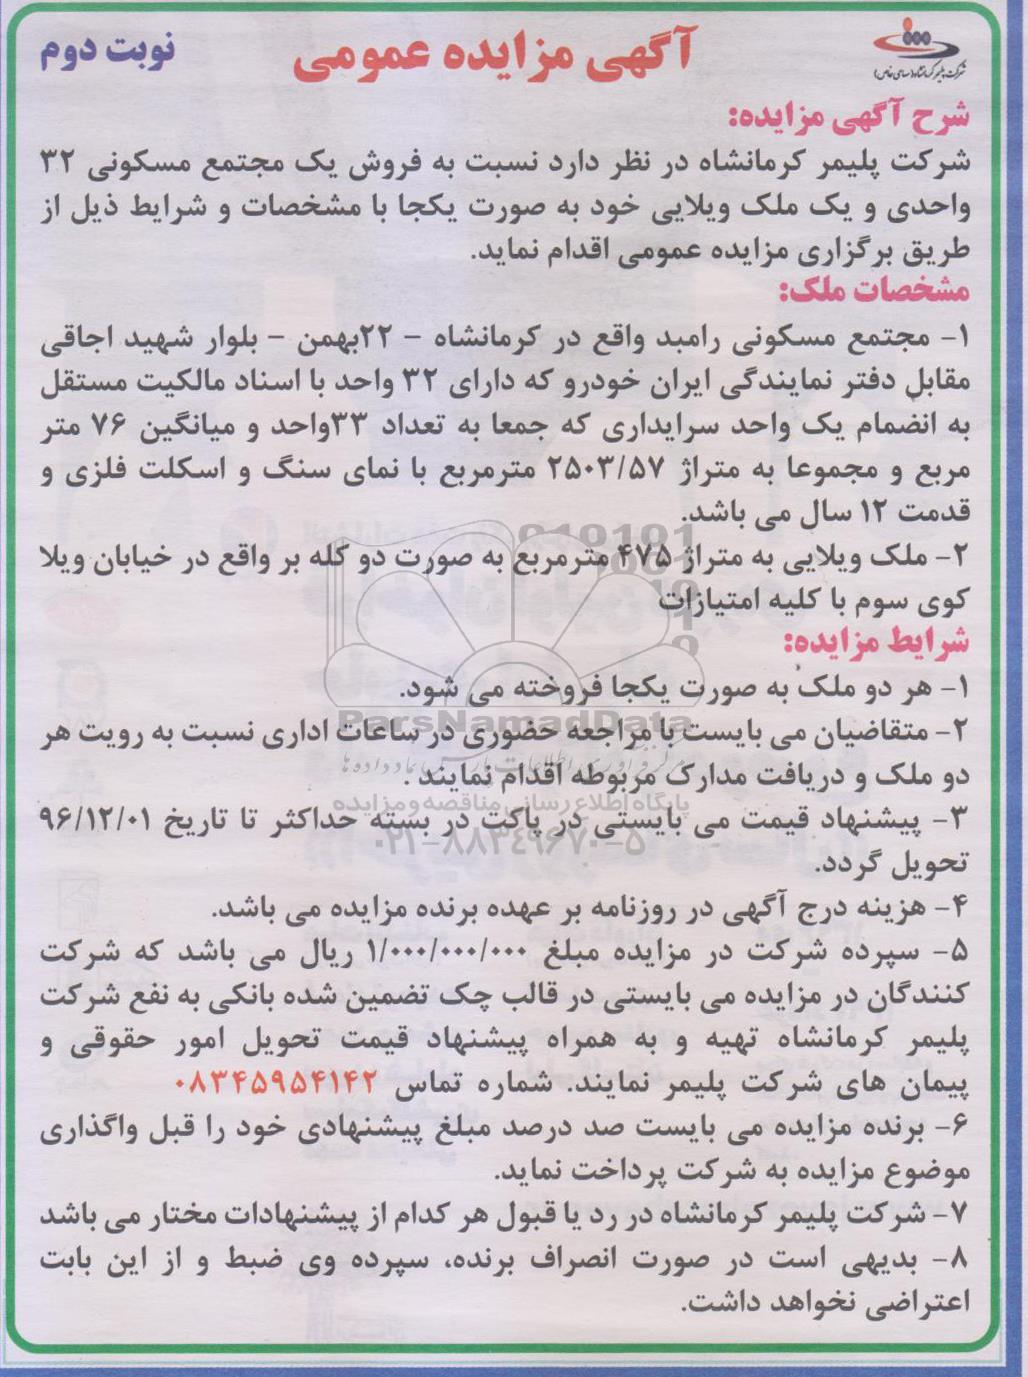 شرکت پلیمر کرمانشاه (سهامی خاص)
آگهی مزایده عمومی
نوبت دوم
شرح آگهی مزایده:
شرکت پلیمر کرمانشاه در نظر دارد نسبت به فروش یک مجتمع مسکونی ۳۲
واحدی و یک ملک ویلایی خود به صورت یکجا با مشخصات و شرایط ذیل از
طریق برگزاری مزایده عمومی اقدام نماید.
مشخصات ملک:
۱- مجتمع مسکونی رامبد واقع در کرمانشاه - ۲۲بهمن - بلوار شهید اجاقی
مقابل دفتر نمایندگی ایران خودرو که دارای ۳۲ واحد با اسناد مالکیت مستقل
به انضمام یک واحد سرایداری که جمعا به تعداد ۳۳واحد و میانگین ۷۶ متر
مربع و مجموعا به متراژ ۲۵۰۳/۵۷ مترمربع با نمای سنگ و اسکلت فلزی و
قدمت ۱۲ سال می باشد.
۲- ملک ویلایی به متراژ ۴۷۵ مترمربع به صورت دو کله بر واقع در خیابان ویلا
کوی سوم با کلیه امتیازات
شرایط مزایده:
۱- هر دو ملک به صورت یکجا فروخته می شود.
ParsNamadData
۲- متقاضیان می بایست با مراجعه حضوری در ساعات اداری نسبت به رویت هر
مرکز فرآوری اطلاعات پارس نماد داده ها
دو ملک و دریافت مدارک مربوطه اقدام نمایند .
پایگاه اطلاع رسانی مناقصه و مزایده
۳- پیشنهاد قیمت می بایستی در پاکت در بسته حداکثر تا تاریخ ۹۶/۱۲/۰۱
۰۲۱-۸۸۳۴۹۶۷۰-۵
تحویل گردد.
۴- هزینه درج آگهی در روزنامه بر عهده برنده مزایده می باشد.
۵- سپرده شرکت در مزایده مبلغ ۱/۰۰۰/۰۰۰/۰۰۰ ریال می باشد که شرکت
کنندگان در مزایده می بایستی در قالب چک تضمین شده بانکی به نفع شرکت
پلیمر کرمانشاه تهیه و به همراه پیشنهاد قیمت تحویل امور حقوقی و
پیمان های شرکت پلیمر نمایند. شماره تماس ۰۸۳۴۵۹۵۴۱۴۲
۶- برنده مزایده می بایست صد درصد مبلغ پیشنهادی خود را قبل واگذاری
موضوع مزایده به شرکت پرداخت نماید.
۷- شرکت پلیمر کرمانشاه در رد یا قبول هر کدام از پیشنهادات مختار می باشد
۸- بدیهی است در صورت انصراف برنده، سپرده وی ضبط و از این بابت
اعتراضی نخواهد داشت.